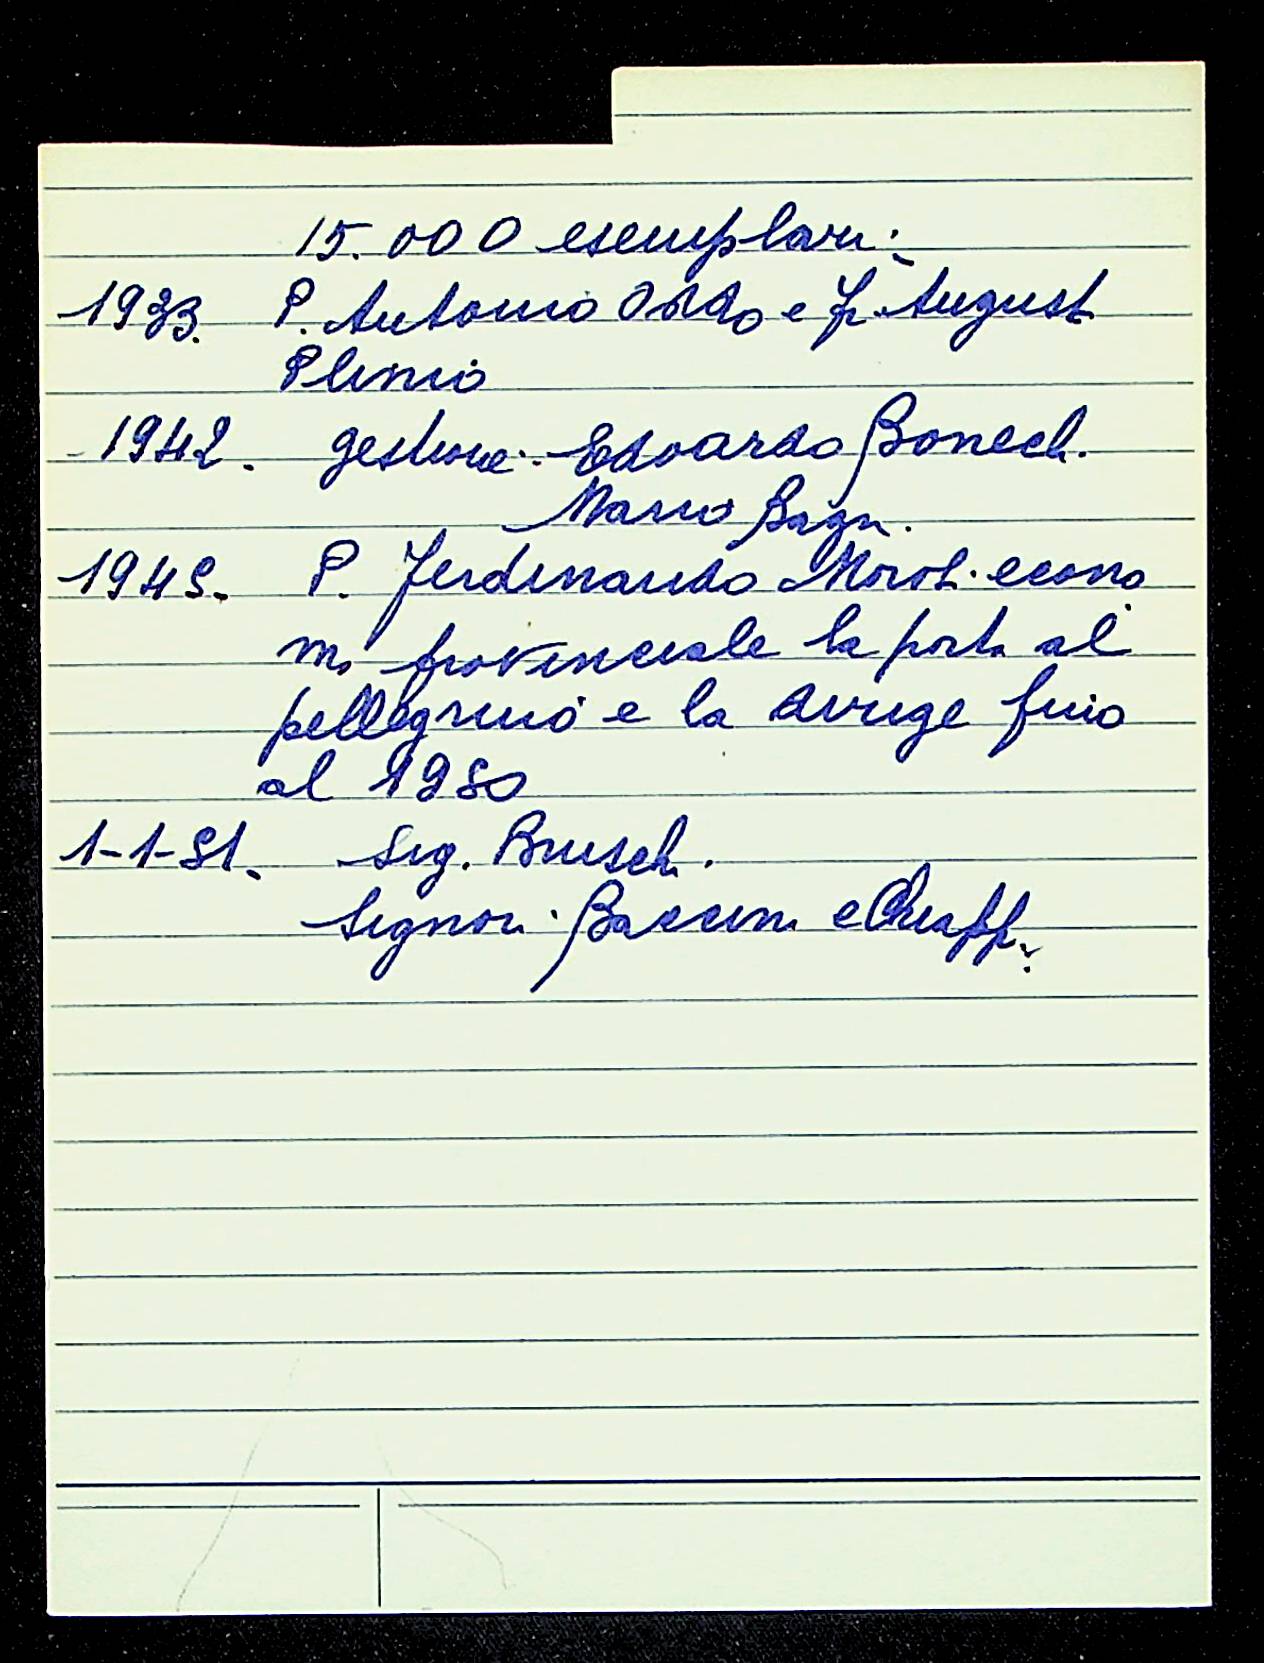 15.000 esemplari:
1933. P. Antonio Oddo e p. August.
Plinio
- 1942. gestione: Edoardo Bonech.
Mario Bagn.
- 1945. P. Ferdinando Morot. econo
mo provinciale la porta al
pellegrino e la dirige fino
al 1980
1-1-81. Sig. Brusch.
Signori: Baccin. e Chiapp.: